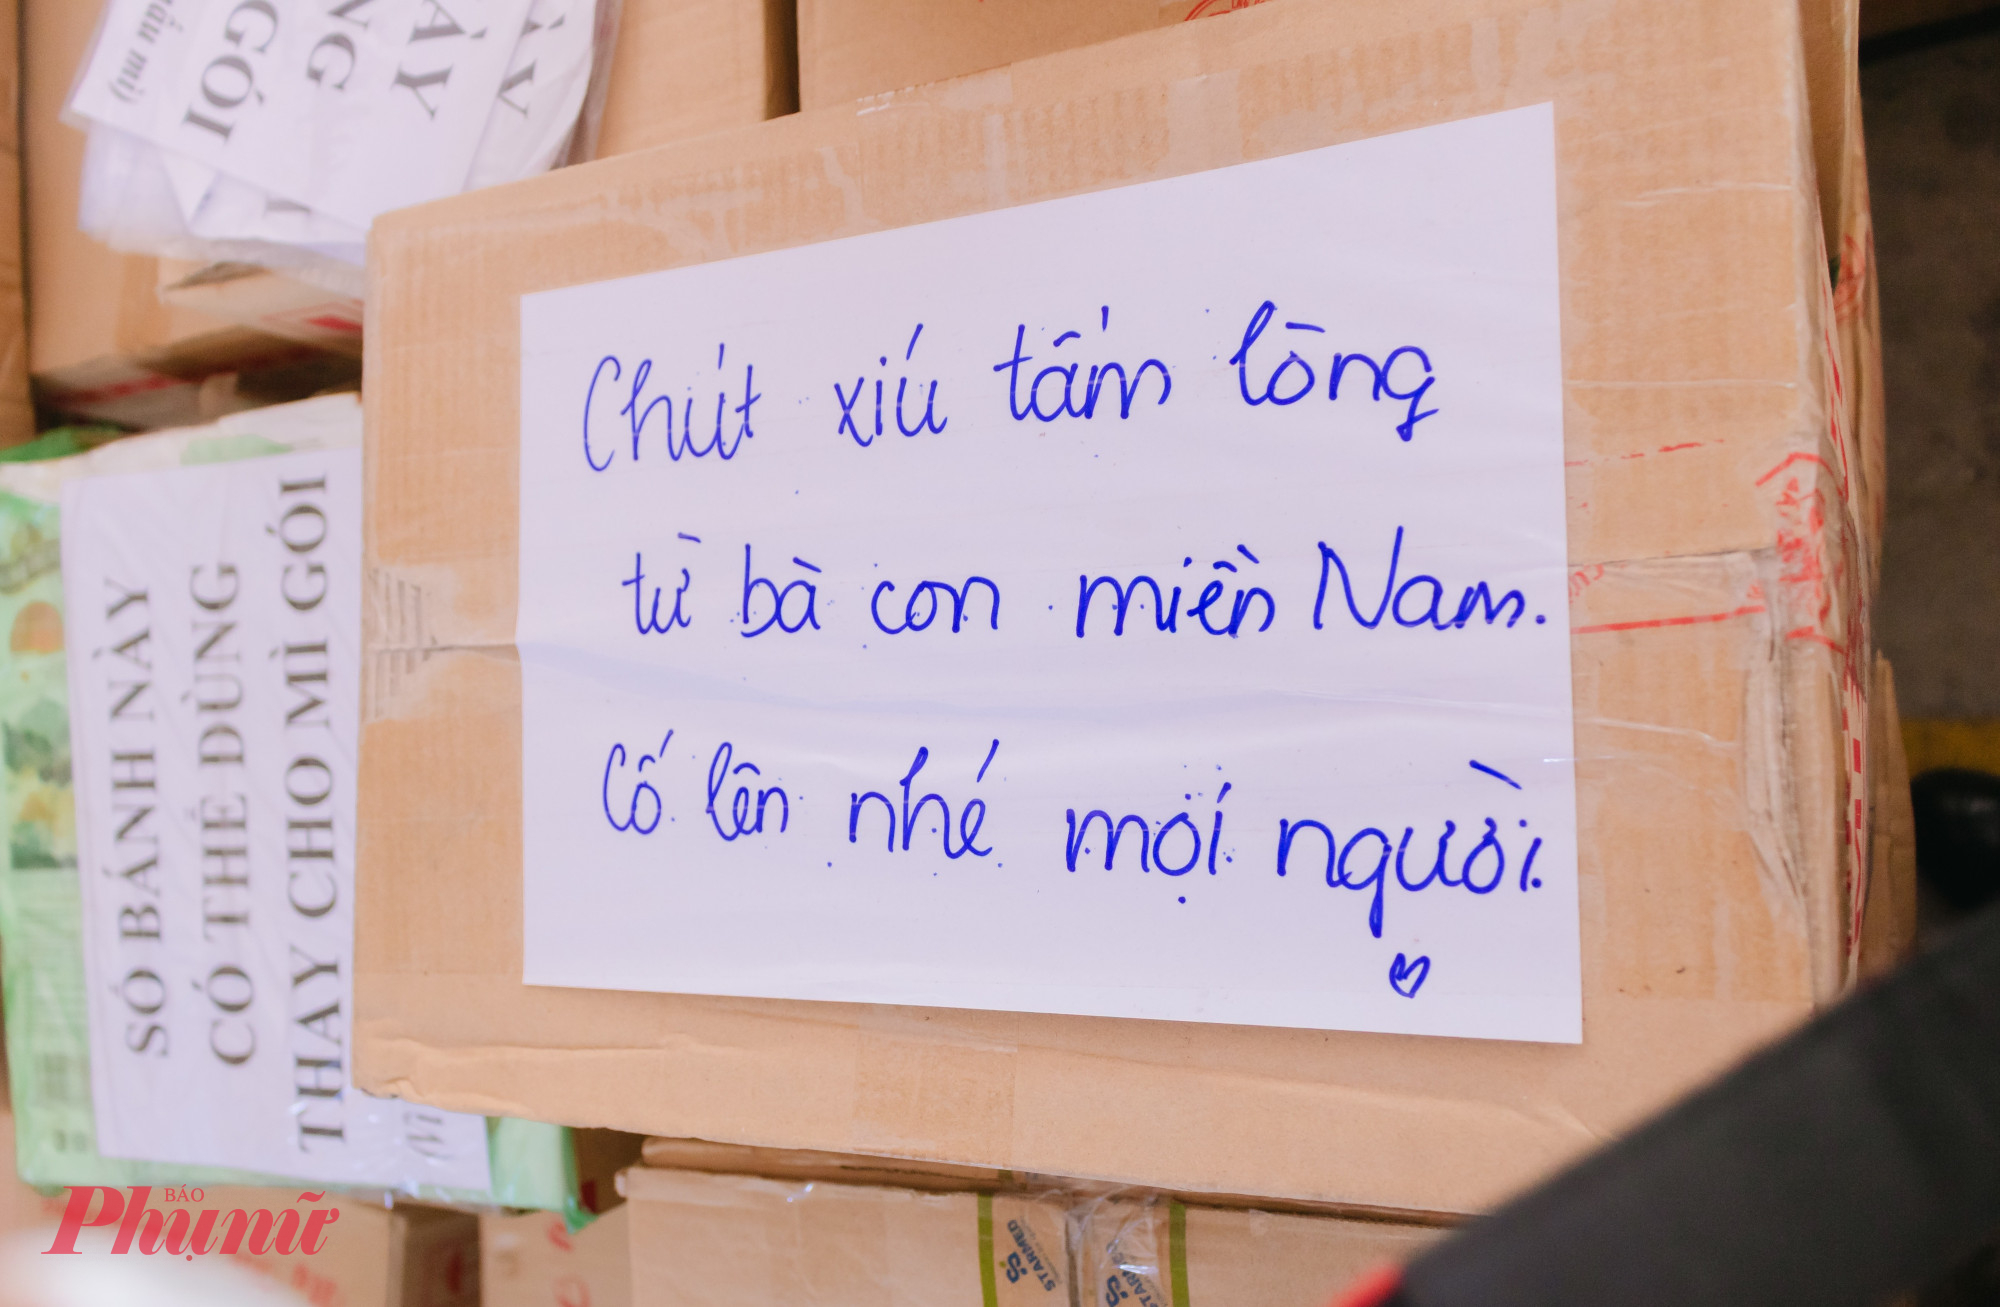 Chút xíu tấm lòng
từ bà con miền Nam.
Cố lên nhé mọi người.
SỐ BÁNH NÀY
CÓ THỂ DÙNG
THAY CHO MÌ GÓI
GÓI
STARMED
BÁO
Phụ nữ